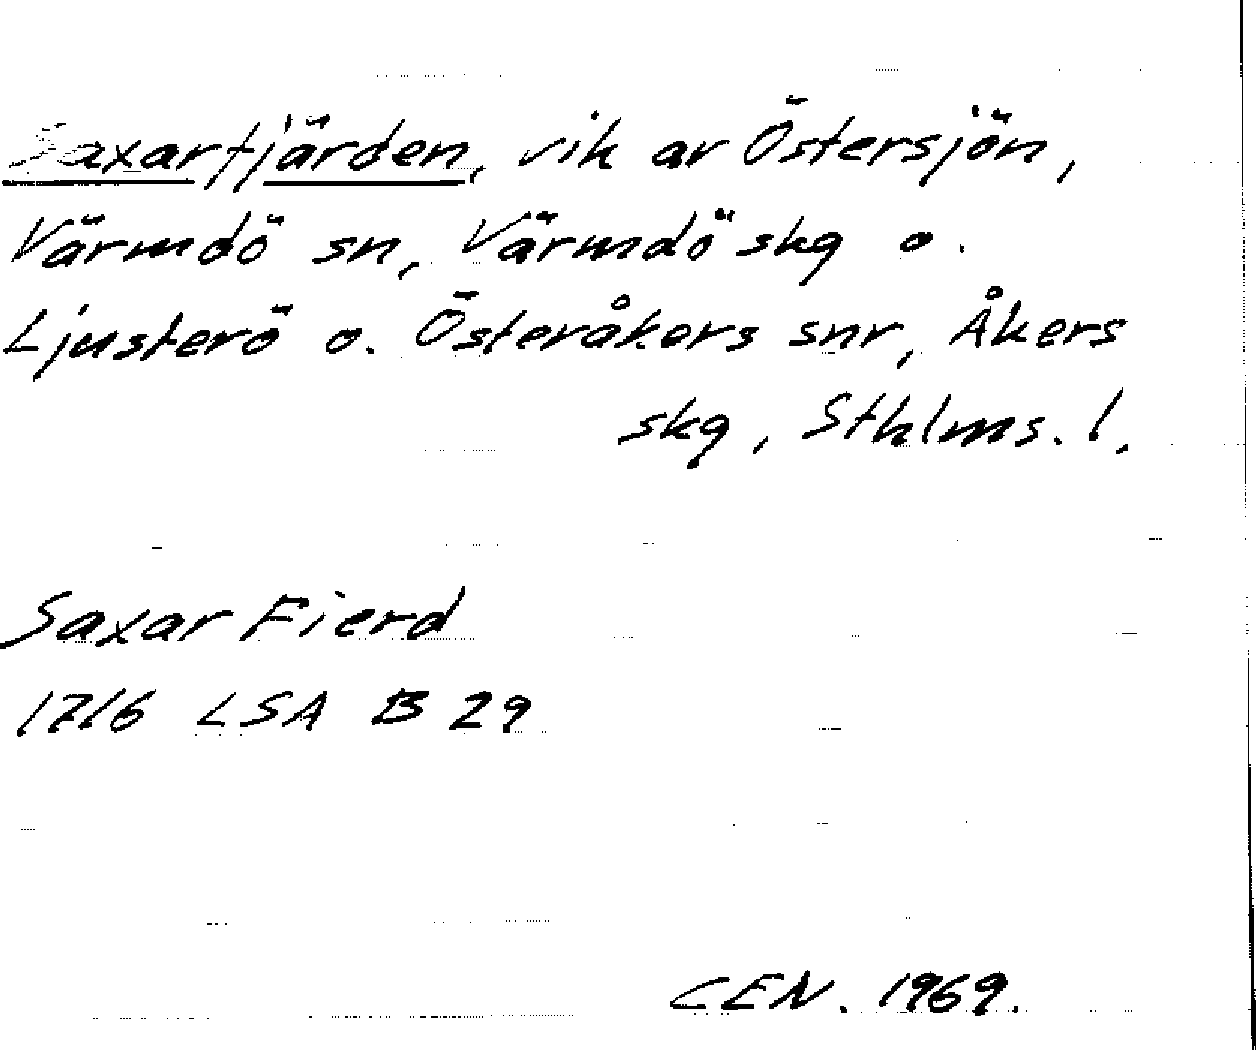 Saxarfjärden, vik av Östersjön,
Värmdö sn, Värmdö skg o.
Ljusterö o. Österåkers snr, Åkers
skg, Sthlms. l.
Saxar Fierd
1716 LSA B 29
CEN. 1969.